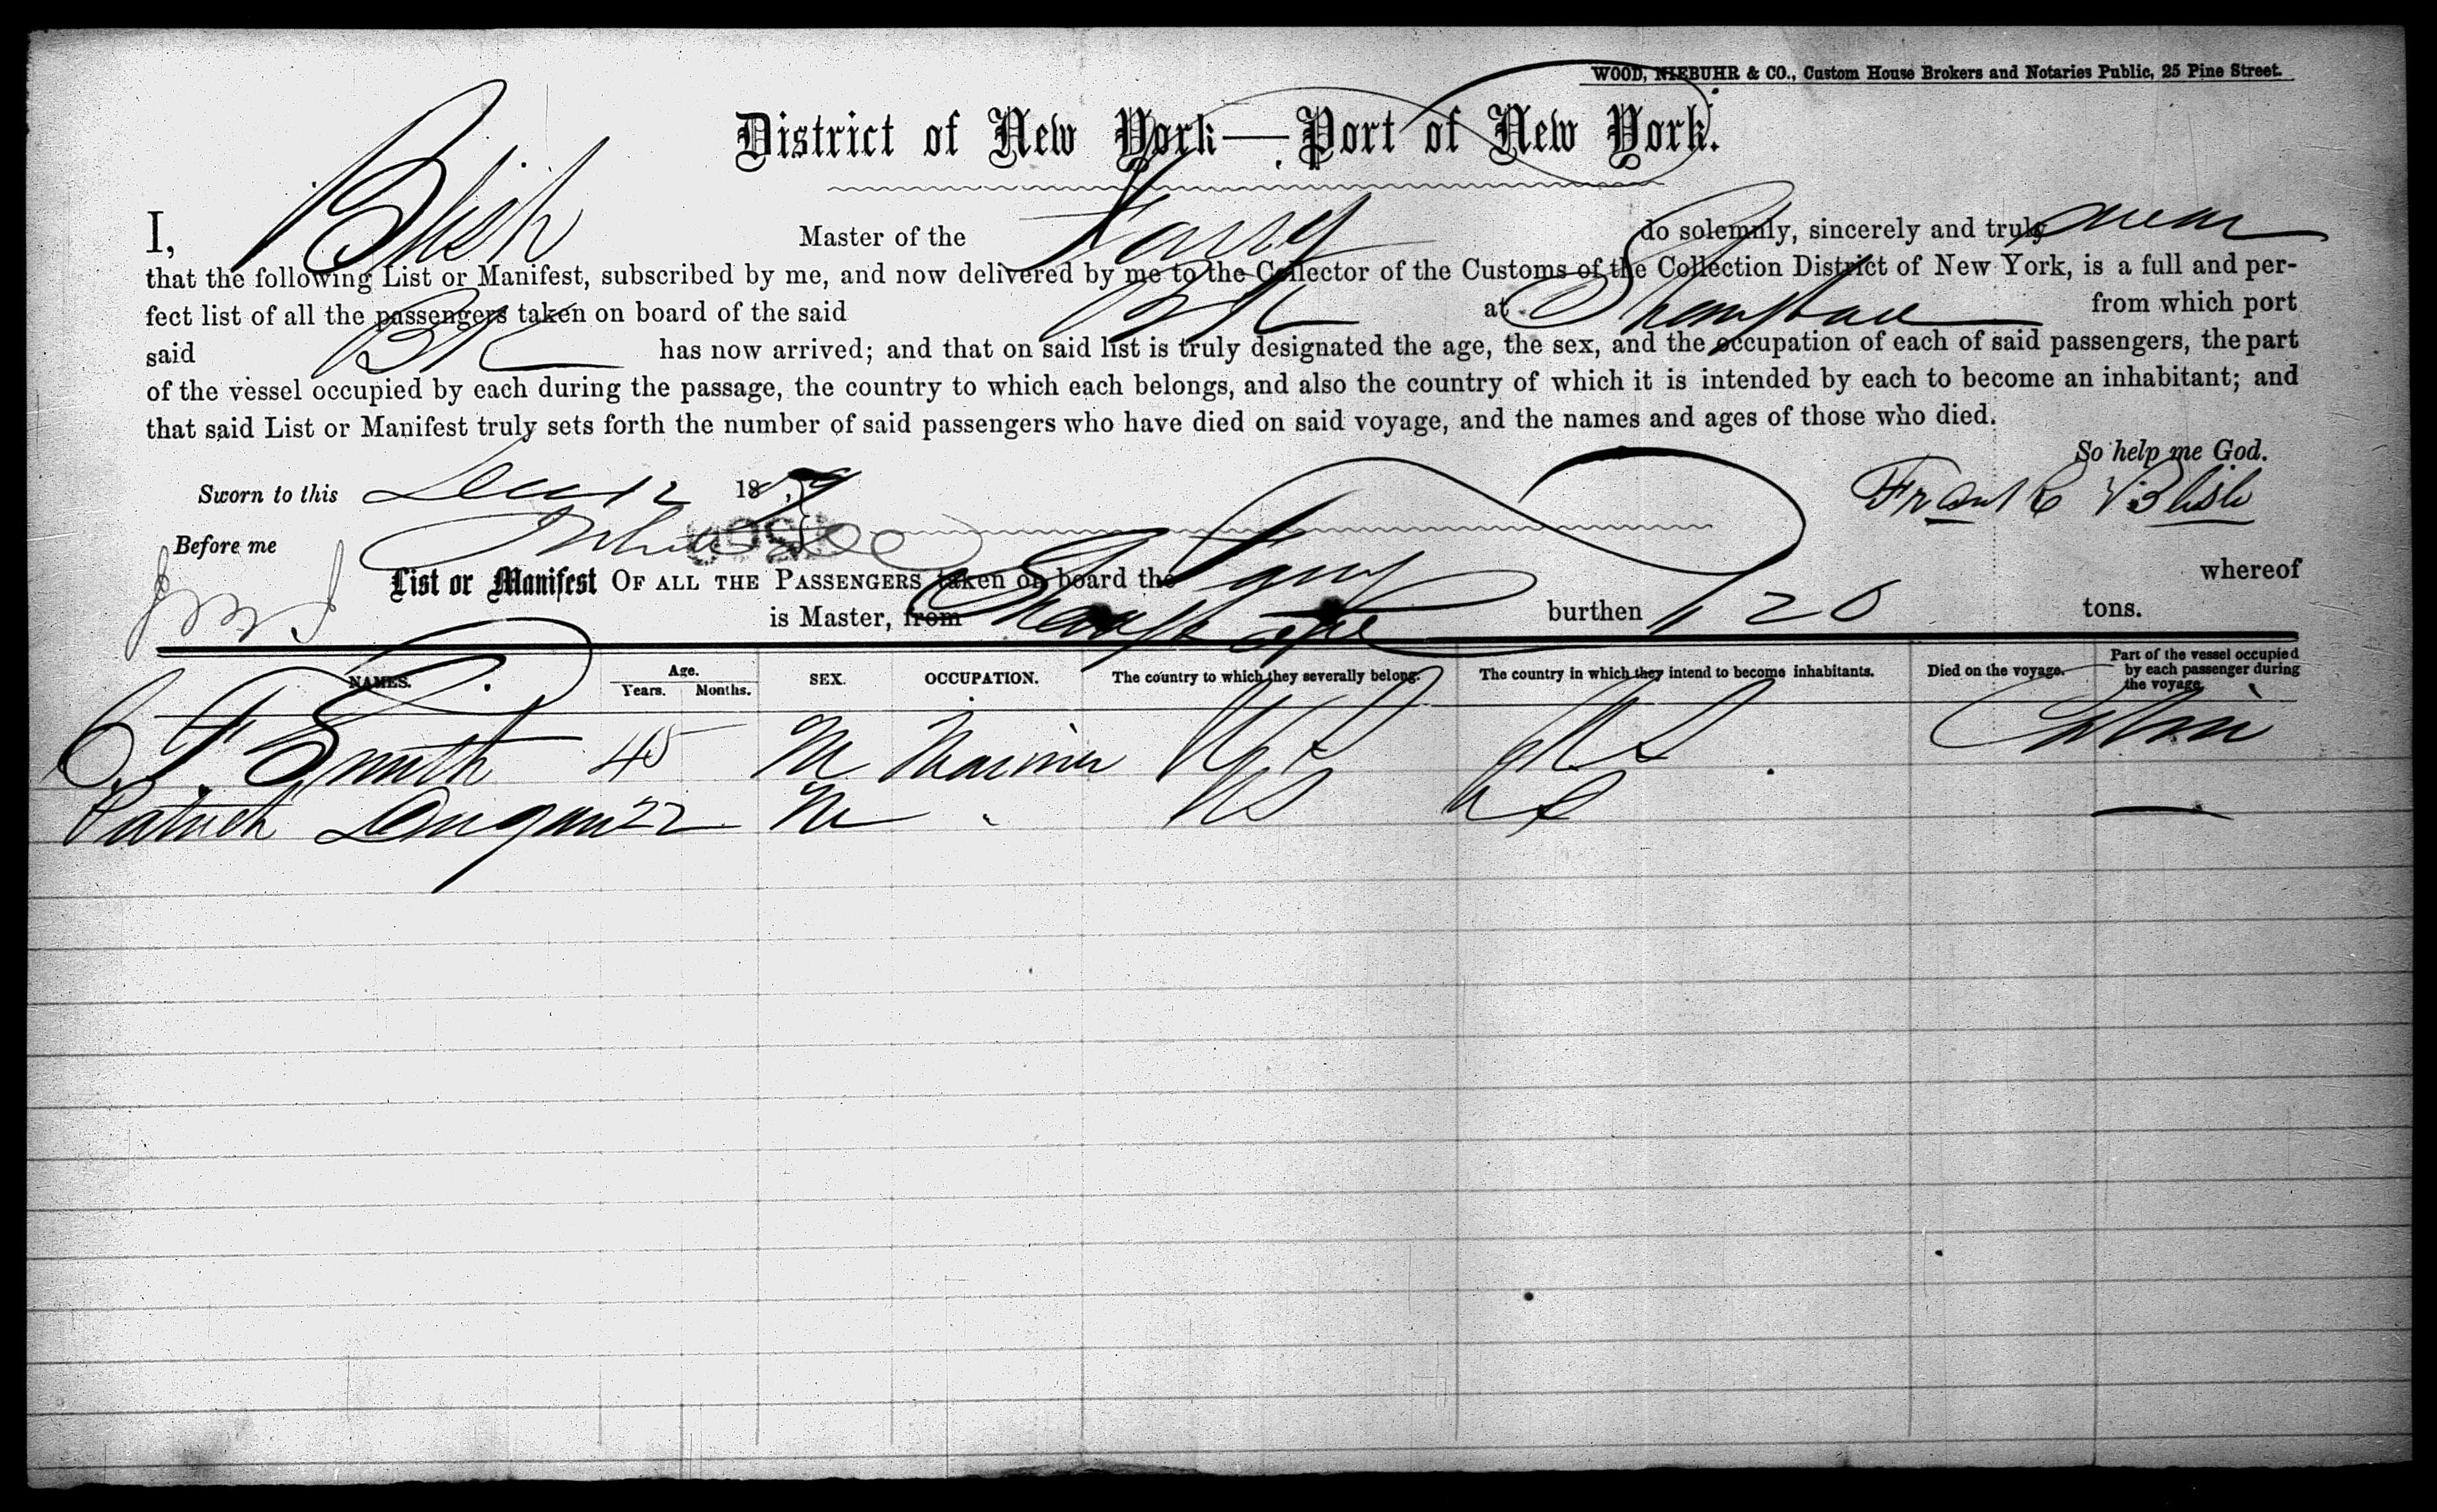 WOOD, NIEBUHR & CO., Custom House Brokers and Notaries Public, 25 Pine Street.
District of New York—Port of New York.
I, Blish Master of the do solemnly, sincerely and truly swear
that the following List or Manifest, subscribed by me, and now delivered by me to the Collector of the Customs of the Collection District of New York, is a full and per-
fect list of all the passengers taken on board of the said Bk at from which port
said Bk has now arrived; and that on said list is truly designated the age, the sex, and the occupation of each of said passengers, the part
of the vessel occupied by each during the passage, the country to which each belongs, and also the country of which it is intended by each to become an inhabitant; and
that said List or Manifest truly sets forth the number of said passengers who have died on said voyage, and the names and ages of those who died.
So help me God.
Sworn to this 12 18 Frank Blish
Before me
List or Manifest OF ALL THE PASSENGERS taken on board the whereof
is Master, from burthen tons.
NAMES. Age. Years. Months. SEX. OCCUPATION. The country to which they severally belong. The country in which they intend to become inhabitants. Died on the voyage. Part of the vessel occupied by each passenger during the voyage.
Smith 45 M Mariner US US Cabin
Patrick Dugan 22 M " US US —